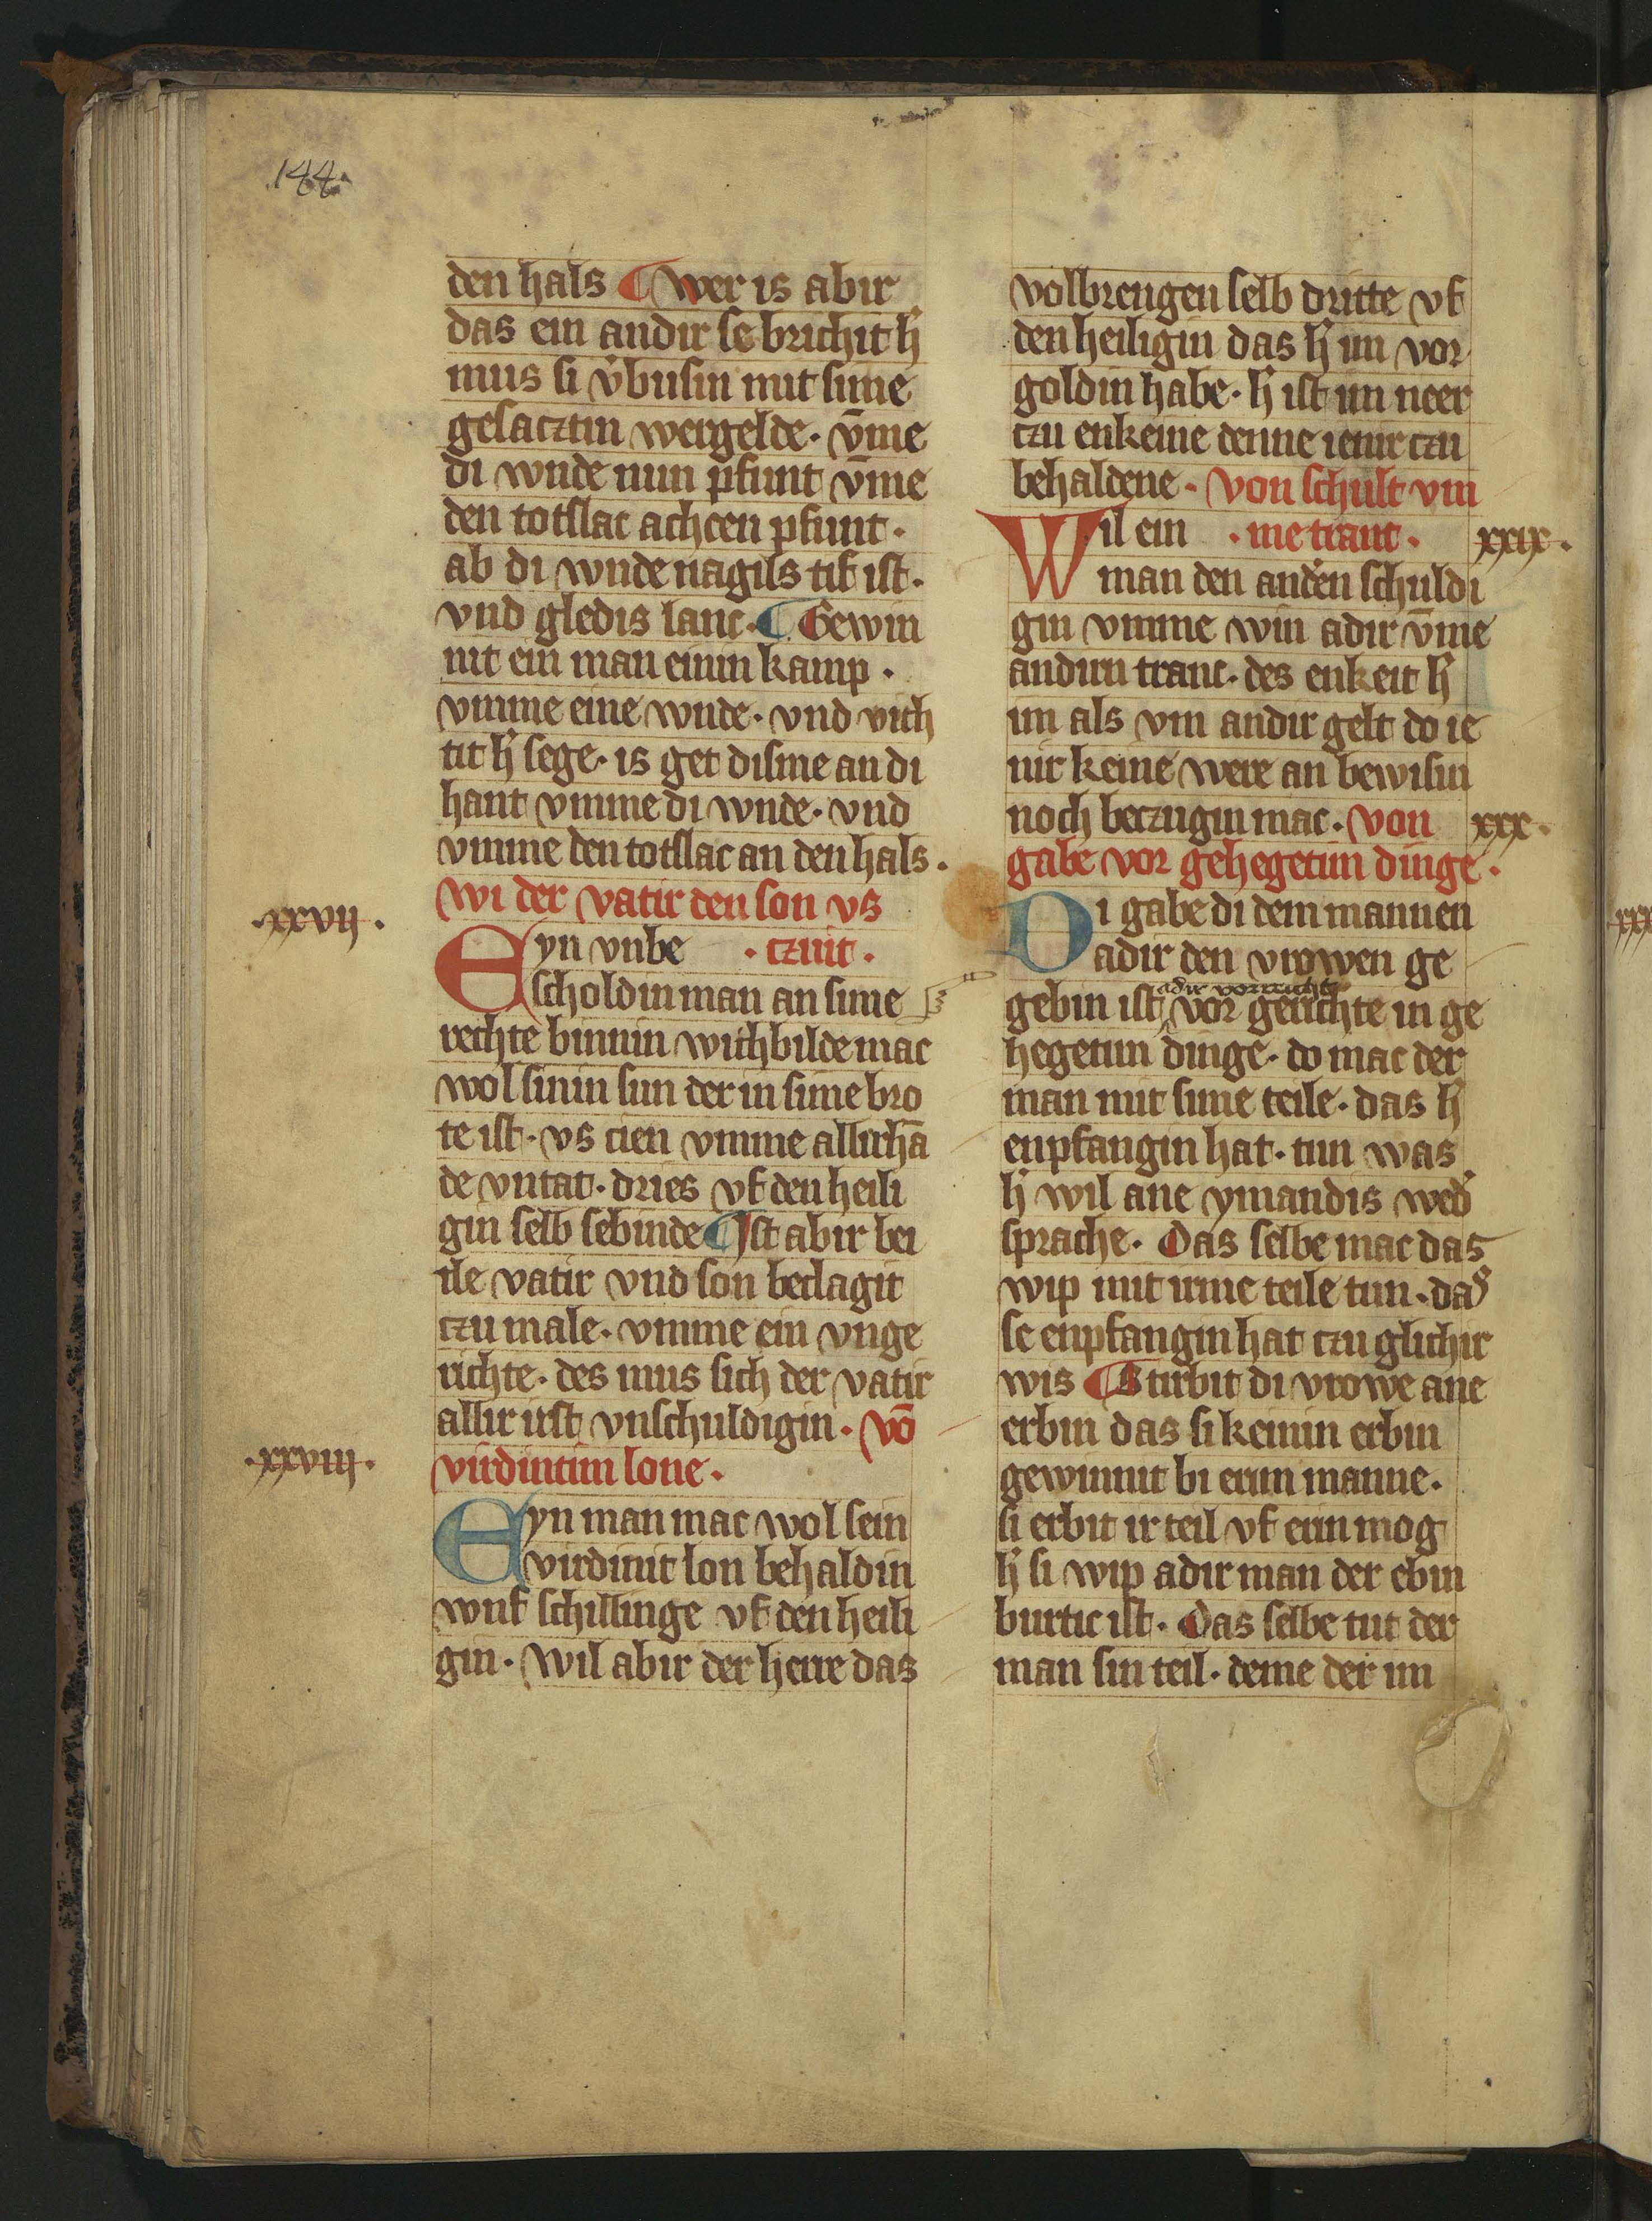 144.
den hals ¶ wer is abir
das ein andir se brichit h̾
mus si v̾busin mit sime
gesacztin wergelde · vm̄e
di wnde nun pfunt vm̄e
den totslac achcen pfunt ·
ab di wnde nagils tif ist ·
vnd gledis lanc · ¶ Gewin
nit ein man einin kamp ·
vmme eine wnde · vnd vich
tit h̾ sege · is get disme an di
hant vmme di wnde · vnd
vmme den totslac an den hals ·
wi der vatir den son vs
· xxvij ·
Eyn vnbe · czuit ·
scholdin man an sime
rechte binnin wichbilde mac
wol sinin sun der in sime bro
te ist · vs cien vmme allirhā
de vntat · dries vf den heili
gin selb sebinde ¶ Ist abir bei
ile vatir vnd son beclagit
czu male · vmme ein vnge
richte · des mus sich der vatir
allir irst vnschuldigin · vō
· xxviij ·
virdintim lone ·
Eyn man mac wol sein
virdinit lon behaldin
wnf schillinge vf den heili
gin · Wil abir der herre das
volbrengen selb dritte vf
den heiligin das h̾ im vor
goldin habe · h̾ ist im neer
czu enkeine denne ienir czu
behaldene · von schult vm
Wil ein · me tranc ·
xxix ·
man den and̾en schuldi
gin vmme win adir vm̄e
andirn tranc · des enkeit h̾
im als vm andir gelt do ie
nir keine were an bewisin
noch beczugin mac · von
xxx ·
gabe vor gehegetim dinge ·
Di gabe di dem mannen
adir den vrowen ge
adir vorreicht
gebin ist vor gerichte in ge
hegetim dinge · do mac der
man mit sime teile · das h̾
enpfangin hat · tun was
h̾ wil ane ymandis wed̾
sprache · Das selbe mac das
wip mit irme teile tun · das
se enpfangin hat czu glichir
wis ¶ Stirbit di vrowe ane
erbin das si keinin erbin
gewinnit bi erim manne ·
si erbit ir teil vf erin mog
h̾ si wip adir man der ebin
burtic ist · Das selbe tut der
man sin teil · deme der im